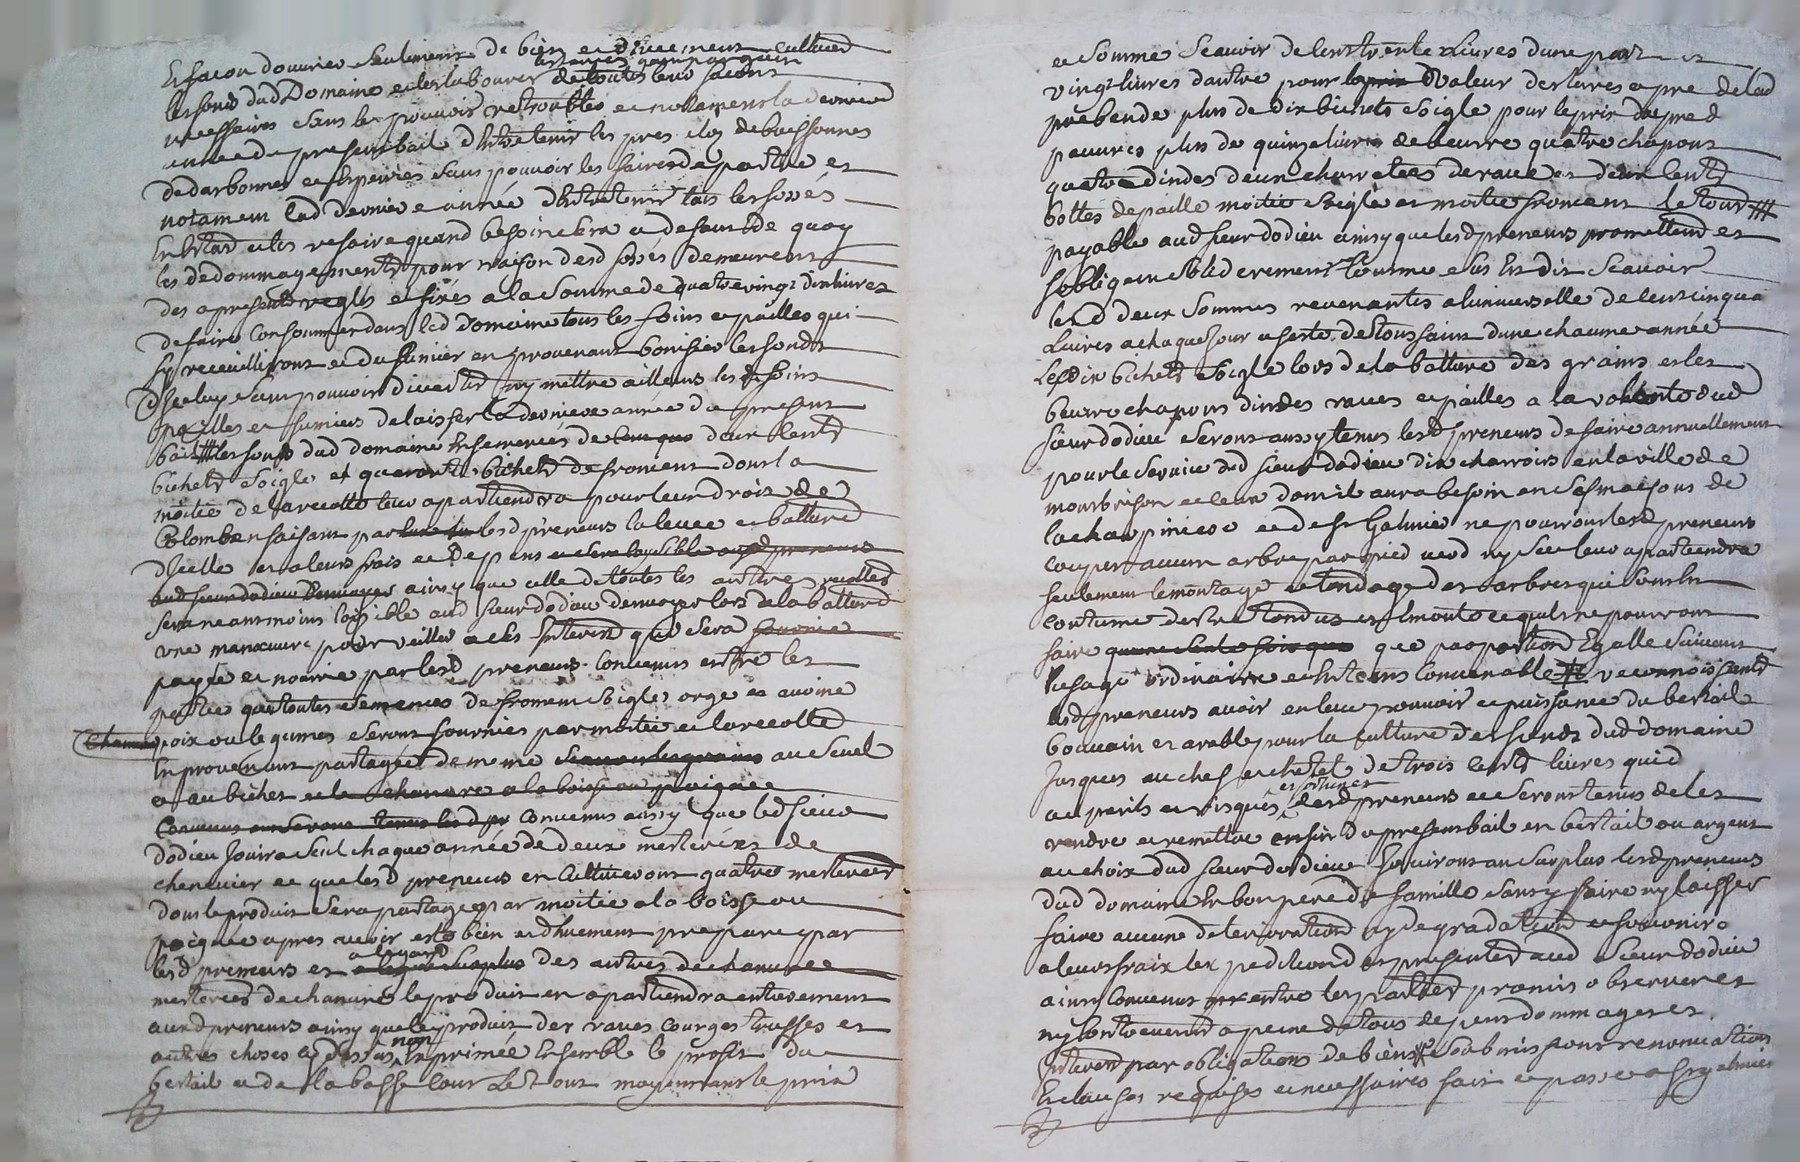 En facon douvrier seulement de bien et duement cultiver
les fonds dud Domaine et les labourer de toutes leurs facons
necessaires sans les pouvoir retroubler et notament la derniere
année du present bail d'entretenir les pres clos de buissonnes
notament lad derniere année d'entretenir tous les fossés
En Estat et les refaire quand besoin sera a defaut de quoy
les dedommagements pour raison desd fossés demeurent
des apresent reglés et fixés a la somme de quatre vingt dix livres
de faire consommer dans led domaine tous les foins et pailles qui
sy receuilliront et du fumier en provenant bonifier les fonds
d'Iceluy sans pouvoir divertir ny mettre ailleurs lesd foins
pailles et fumiers de laisser la derniere année du present
bail les fonds dud domaine Ensemencés de deux cents
bichets soigle et quarante bichets de froment dont la
moitié de la recolte leur apartiendra pour leur droit de
Colombe en faisant par lesd preneurs la levee et batture
d'Icelle et a leurs frais et depens
ainsy que celle de toutes les autres recoltes
sera neanmoins loisible aud sieur dodieu denvoyer lors de la batture
une manœuvre pour veiller a ses Interets qui sera
payée et nourrie par lesd preneurs. Convenus entre les
parties que toutes semences de froment soigle orge et avoine
poix ou legumes seront fournies par moitié et la recolte
En provenant partagée de meme au seuil
et au bichet
convenus aussy que led sieur
dodieu Jouira seul chaque année de deux mesterées de
chenevier et que lesd preneurs en cultiveront quatre mesterées
dont le produit sera partagé par moitié a la boisse ou
poignée apres avoir esté bien et duement preparé par
lesd preneurs et a legard des autres
mesterées de chanvre le produit en apartiendra entierement
auxd preneurs ainsy que le produit des raves courges truffes et
autres choses cy dessus non Exprimée Ensemble le profit du
bestail et de la basse cour Le tout moyennant le prix
et somme scavoir de cent trente Livres dune part et
vingt livres dautre pour valeur des terres et pre de lad
prebende plus de dix bichets soigle pour le prix du pre d
pauvres plus de quinze livres de beurre quatre chapons
quatre dindes deux charretées de raves et deux cents
bottes de paille moitié soigle et moitié froment le tout
payable aud sieur dodieu ainsy que lesd preneurs promettent et
sobligent solidairement comme est dit scavoir
lesd deux sommes revenantes a luniverselle de cent cinquante
Livres a chaque Jour et feste de toussaint dune chacune année
Les dix bichets soigle lors de la batture des grains et les
beurre chapons dindes raves et pailles a la volonté dud
sieur dodieu seront aussy tenus lesd preneurs de faire annuellement
pour le service dud sieur dodieu dix charrois en la ville de
montbrison et ceux dont il aura besoin en ses maisons de
la chapiniere et de st Galmier ne pourront lesd preneurs
couper aucun arbre par pied verd ny sec leur apartiendra
seulement le montage et tondage des arbres qui sont en
coutume destre tondus et montés ce quils ne pourront
faire que par portion Egalle suivant
lusage ordinaire et En tems convenable reconnoissent
lesd preneurs avoir en leur pouvoir et puissance du bestail
bouvain et arable pour la culture des fonds dud domaine
Jusques au chef et chetel de trois cents livres qui est
aux perils et risques et fortunes desd preneurs et seront tenus de les
rendre et remettre en fin du present bail en bestail ou argent
au choix dud sieur dodieu Jouiront au surplus lesd preneurs
dud domaine En bon pere de famille sans y faire ny laisser
faire aucune deterioration ny degradation et fourniront
a leurs fraix les pnt aud sieur dodieu
ainsy convenus entre les parties promis observer et
ny contrevenir a peine de tous depens dommages et
Interets par obligations de biens soubmissions renonciations
Et clauses requises et necessaires fait et passé a st galmier